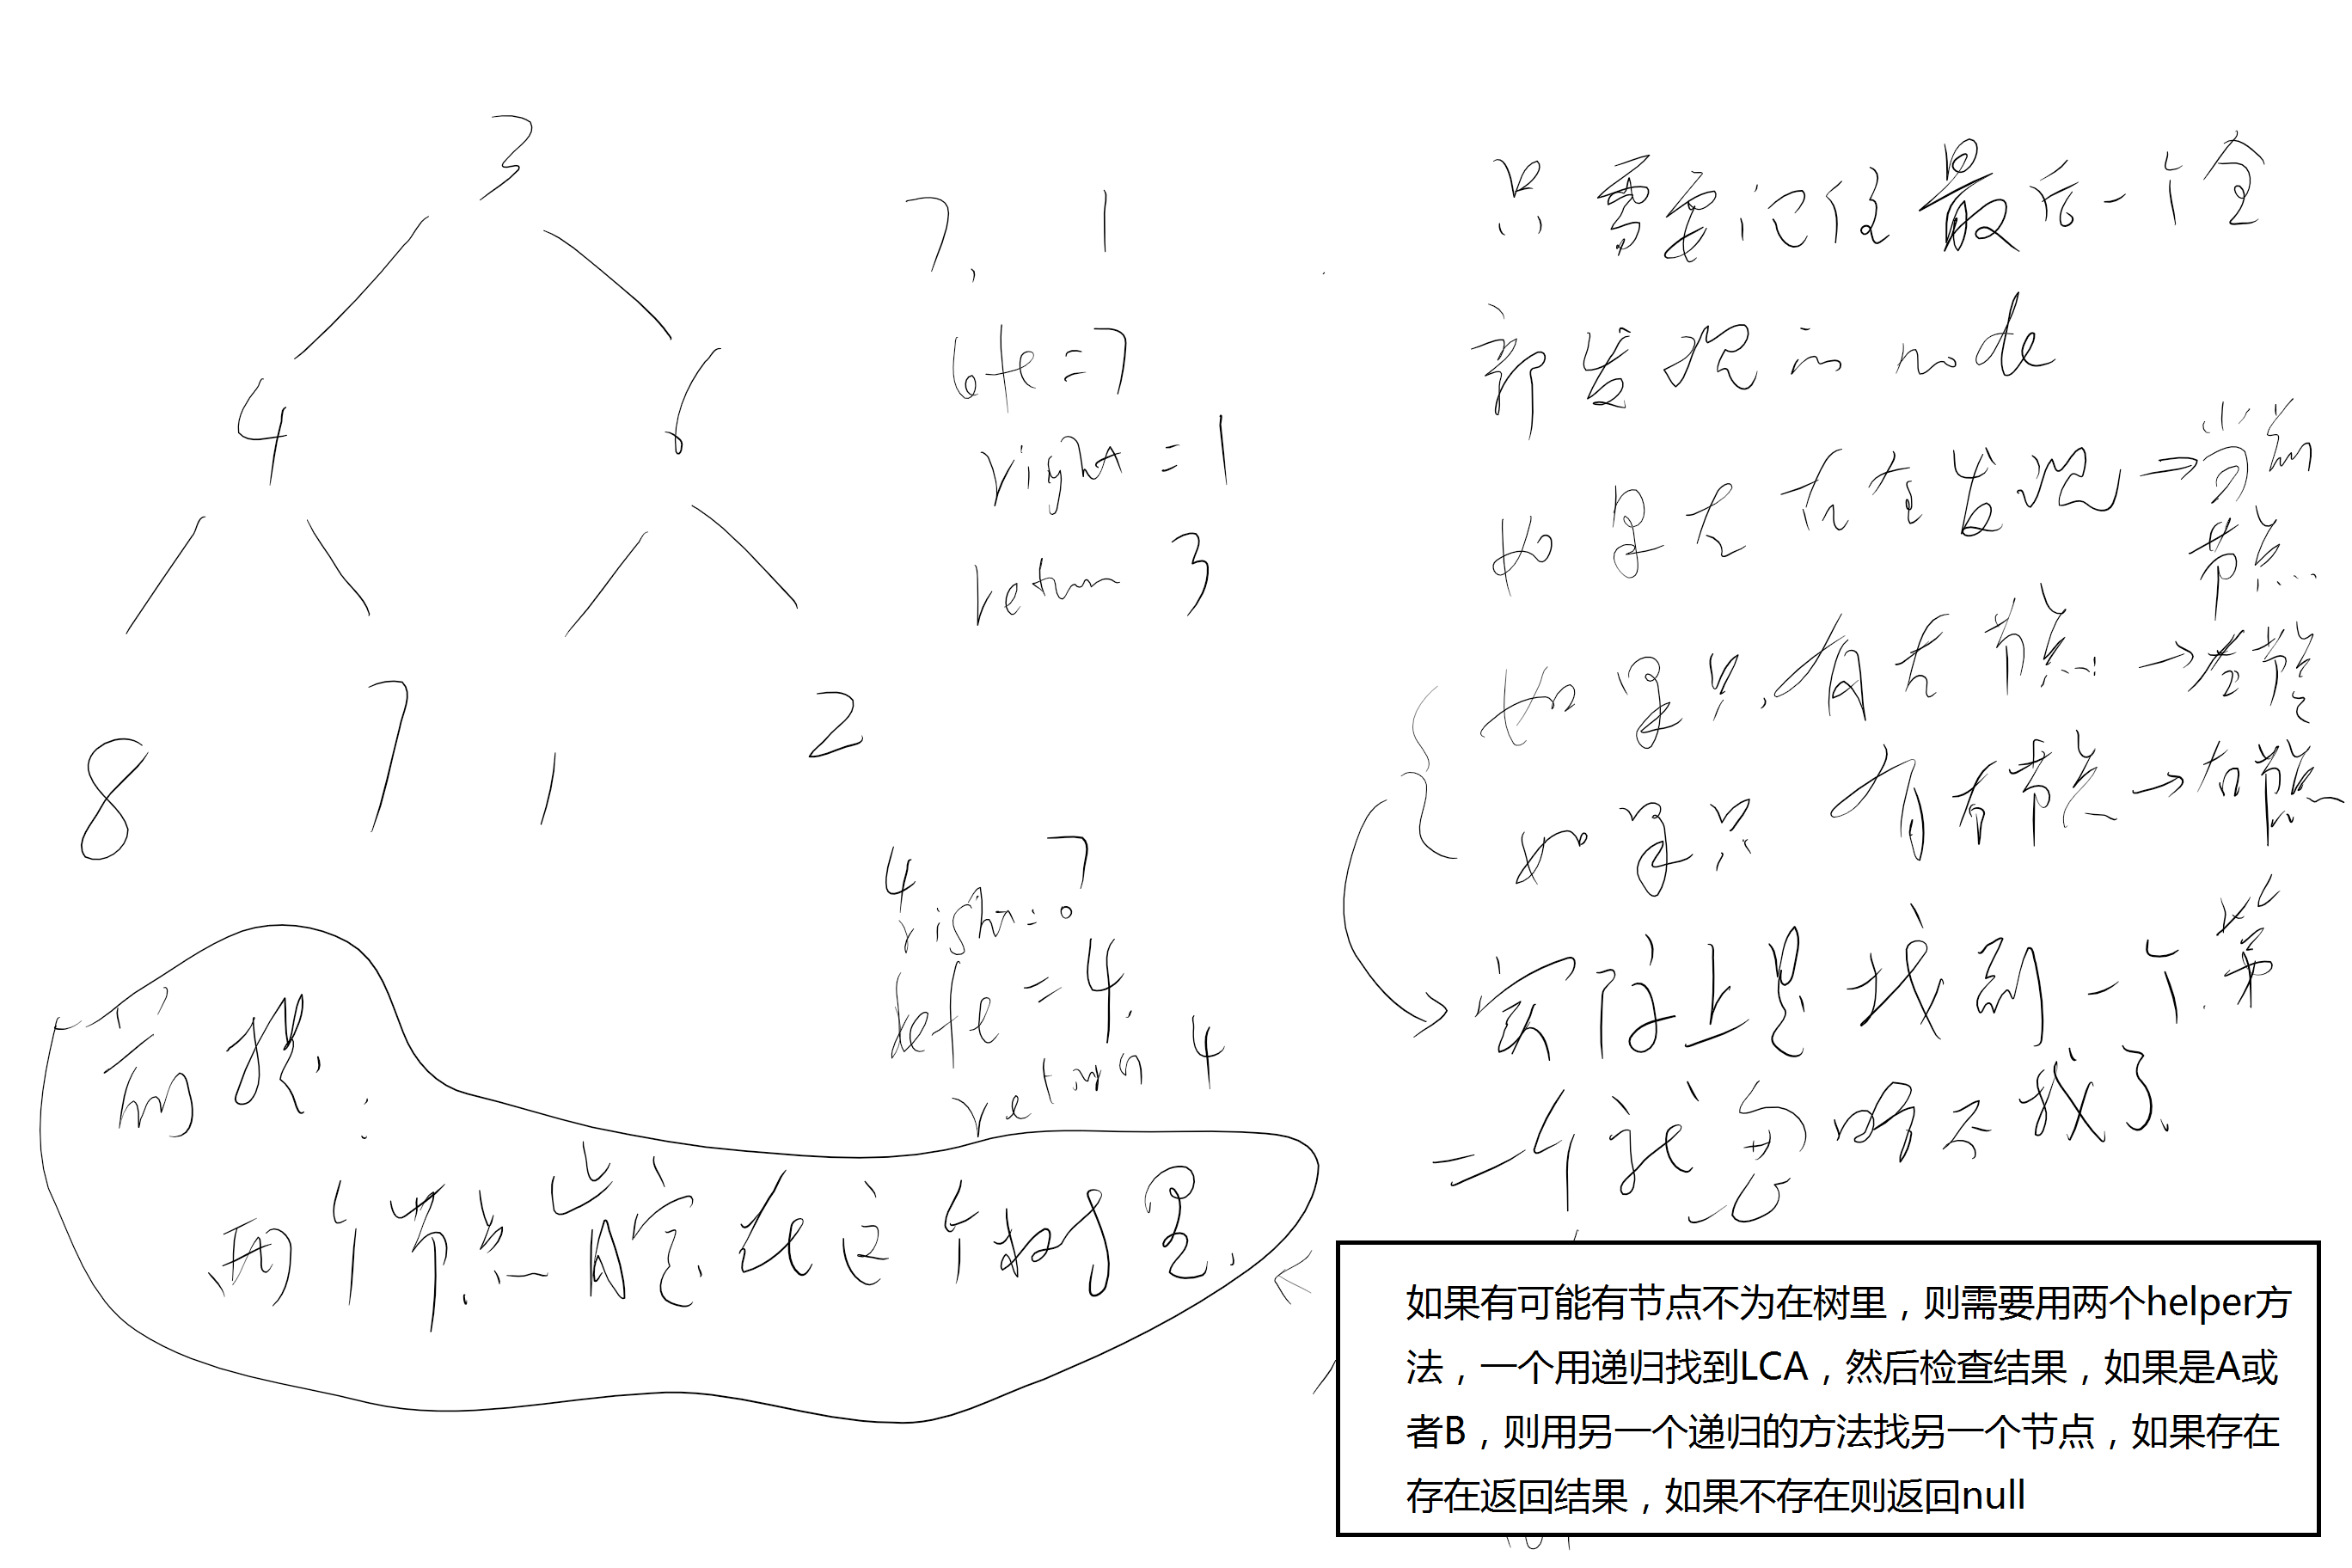 3
4
6
8
7
1
2
7, 1
left = 7
right = 1
return 3
4 7
right = 0
left = 4.
return 4
前提:
两个节点肯定在这个树里.
只需要记住最后一个全
部发现的 node
如果左右全发现 → 当前
节点
如果只有左节点 → 左节点
如果只有右节点 → 右节点
实际上是找到一个.第
二个就忽略不找了.
如果有可能有节点不为在树里，则需要用两个helper方
法，一个用递归找到LCA，然后检查结果，如果是A或
者B，则用另一个递归的方法找另一个节点，如果存在
存在返回结果，如果不存在则返回null